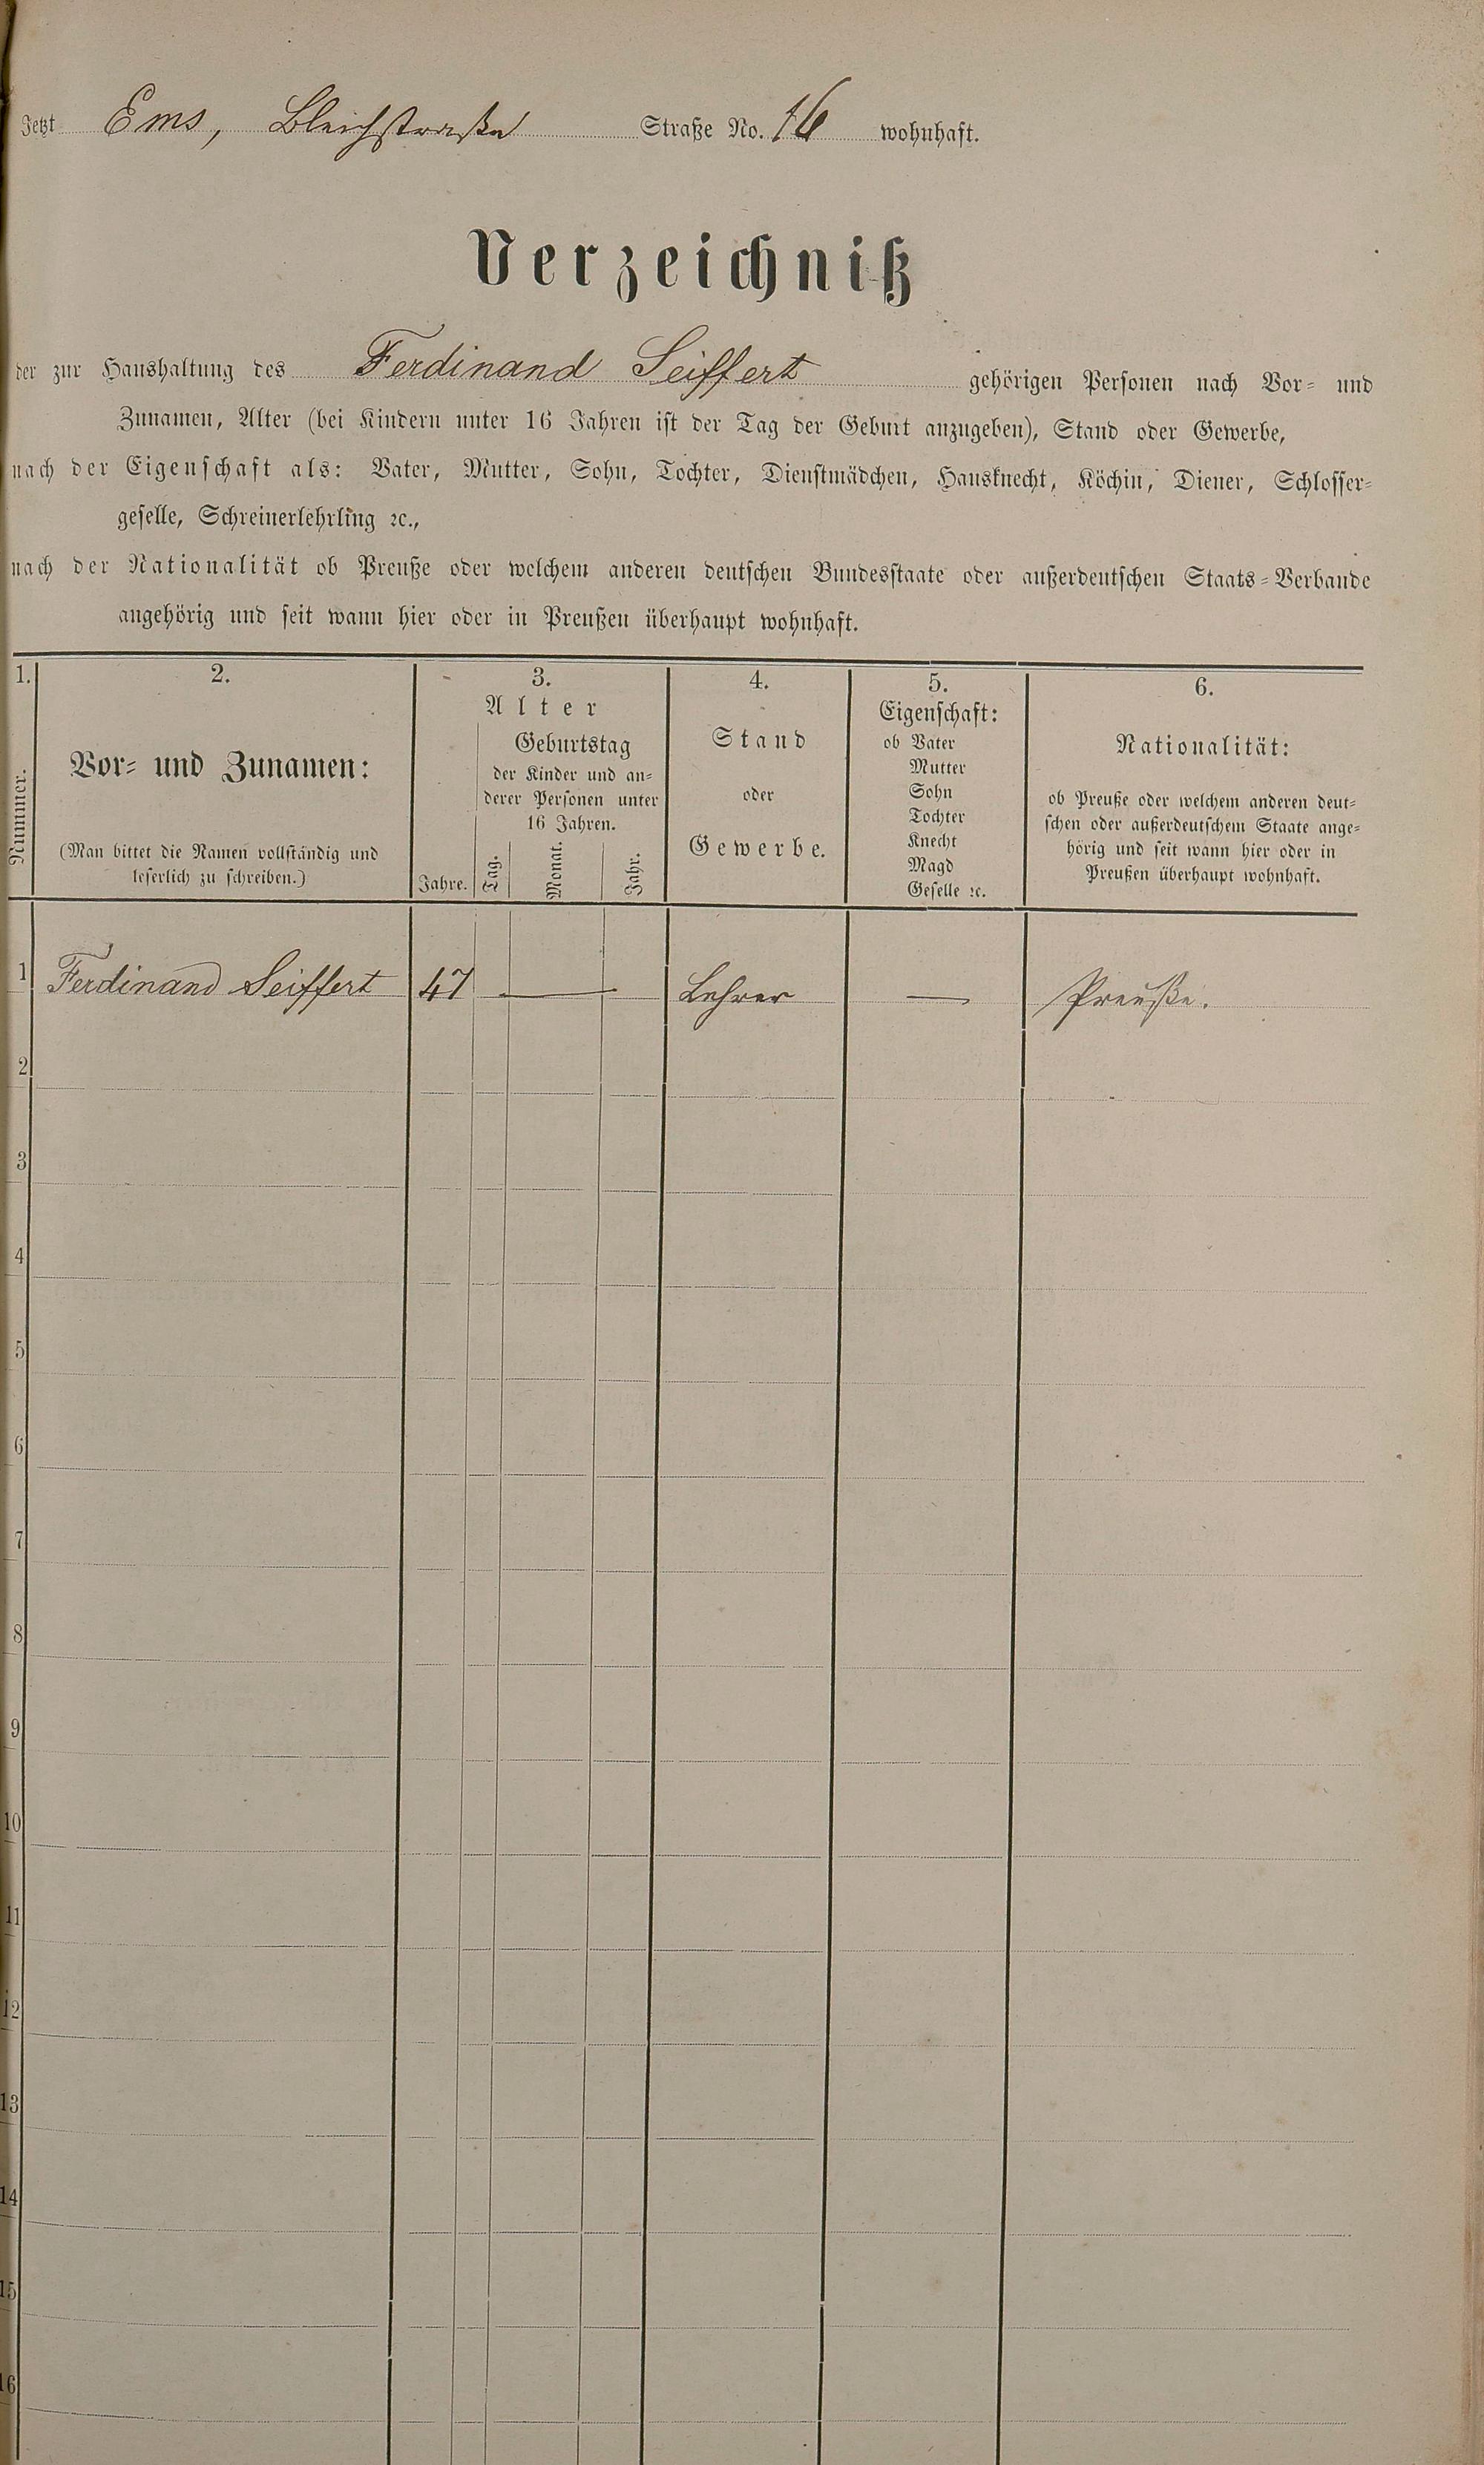 Jetzt Ems, Bleichstraße Straße No. 16 wohnhaft.
Verzeichniß
der zur Haushaltung des Ferdinand Seiffert gehörigen Personen nach Vor- und
Zunamen, Alter (bei Kindern unter 16 Jahren ist der Tag der Geburt anzugeben), Stand oder Gewerbe,
nach der Eigenschaft als: Vater, Mutter, Sohn, Tochter, Dienstmädchen, Hausknecht, Köchin, Diener, Schlosser-
geselle, Schreinerlehrling ꝛc.,
nach der Nationalität ob Preuße oder welchem anderen deutschen Bundesstaate oder außerdeutschen Staats-Verbande
angehörig und seit wann hier oder in Preußen überhaupt wohnhaft.
1.
Nummer.
2.
Vor- und Zunamen:
(Man bittet die Namen vollständig und
leserlich zu schreiben.)
3.
Alter
Jahre.
Geburtstag
der Kinder und an-
derer Personen unter
16 Jahren.
Tag.
Monat.
Jahr.
4.
Stand
oder
Gewerbe.
5.
Eigenschaft:
ob Vater
Mutter
Sohn
Tochter
Knecht
Magd
Geselle ꝛc.
6.
Nationalität:
ob Preuße oder welchem anderen deut-
schen oder außerdeutschem Staate ange-
hörig und seit wann hier oder in
Preußen überhaupt wohnhaft.
1 Ferdinand Seiffert 47 — Lehrer — Preuße.
2
3
4
5
6
7
8
9
10
11
12
13
14
15
16